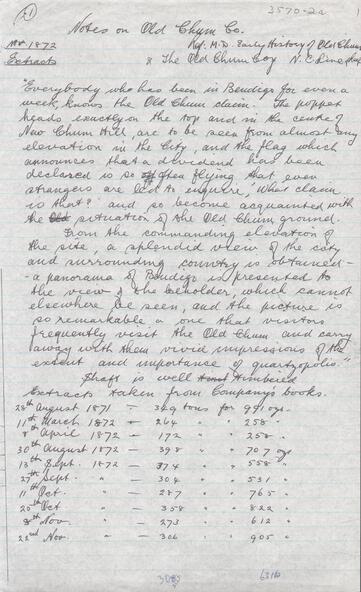 (1)
3570-2a
Notes on Old Chum Co.
1872 Ref. M.D. Early History of Old Chum
Extracts & The Old Chum Coy N. C Line of
"Everybody who has been in Bendigo for even a
week, knows the Old Chum claim. The poppet
heads exactly on the top and in the centre of
New Chum Hill, are to be seen from almost any
elevation in the City, and the flag which
announces that a dividend has been
declared is so often flying that even
strangers are led to enquire, 'What claim
is that?' and so become acquainted with
the situation of the Old Chum ground.
From the commanding elevation of
the site, a splendid view of the city
and surrounding country is obtained -
a panorama of Bendigo is presented to
the view of the beholder, which cannot
elsewhere be seen, and the picture is
so remarkable a one that visitors
frequently visit the Old Chum and carry
away with them vivid impressions of the
extent and importance of quartzopolis."
Shaft is well timbered
Extracts taken from Company's books.
28th August 1871 — 349 tons for 991 ozs
11th March 1872 — 264 " " 258 "
8th April 1872 — 172 " " 258 "
30th August 1872 — 398 " " 707 ozs
13th Sept. 1872 — 374 " " 558 "
27th Sept. " — 304 " " 531 "
11th Oct. " — 287 " " 765 "
20th Oct " — 358 " " 822 "
8th Nov. " — 273 " " 612 "
22nd Nov. " — 306 " " 905 "
3085